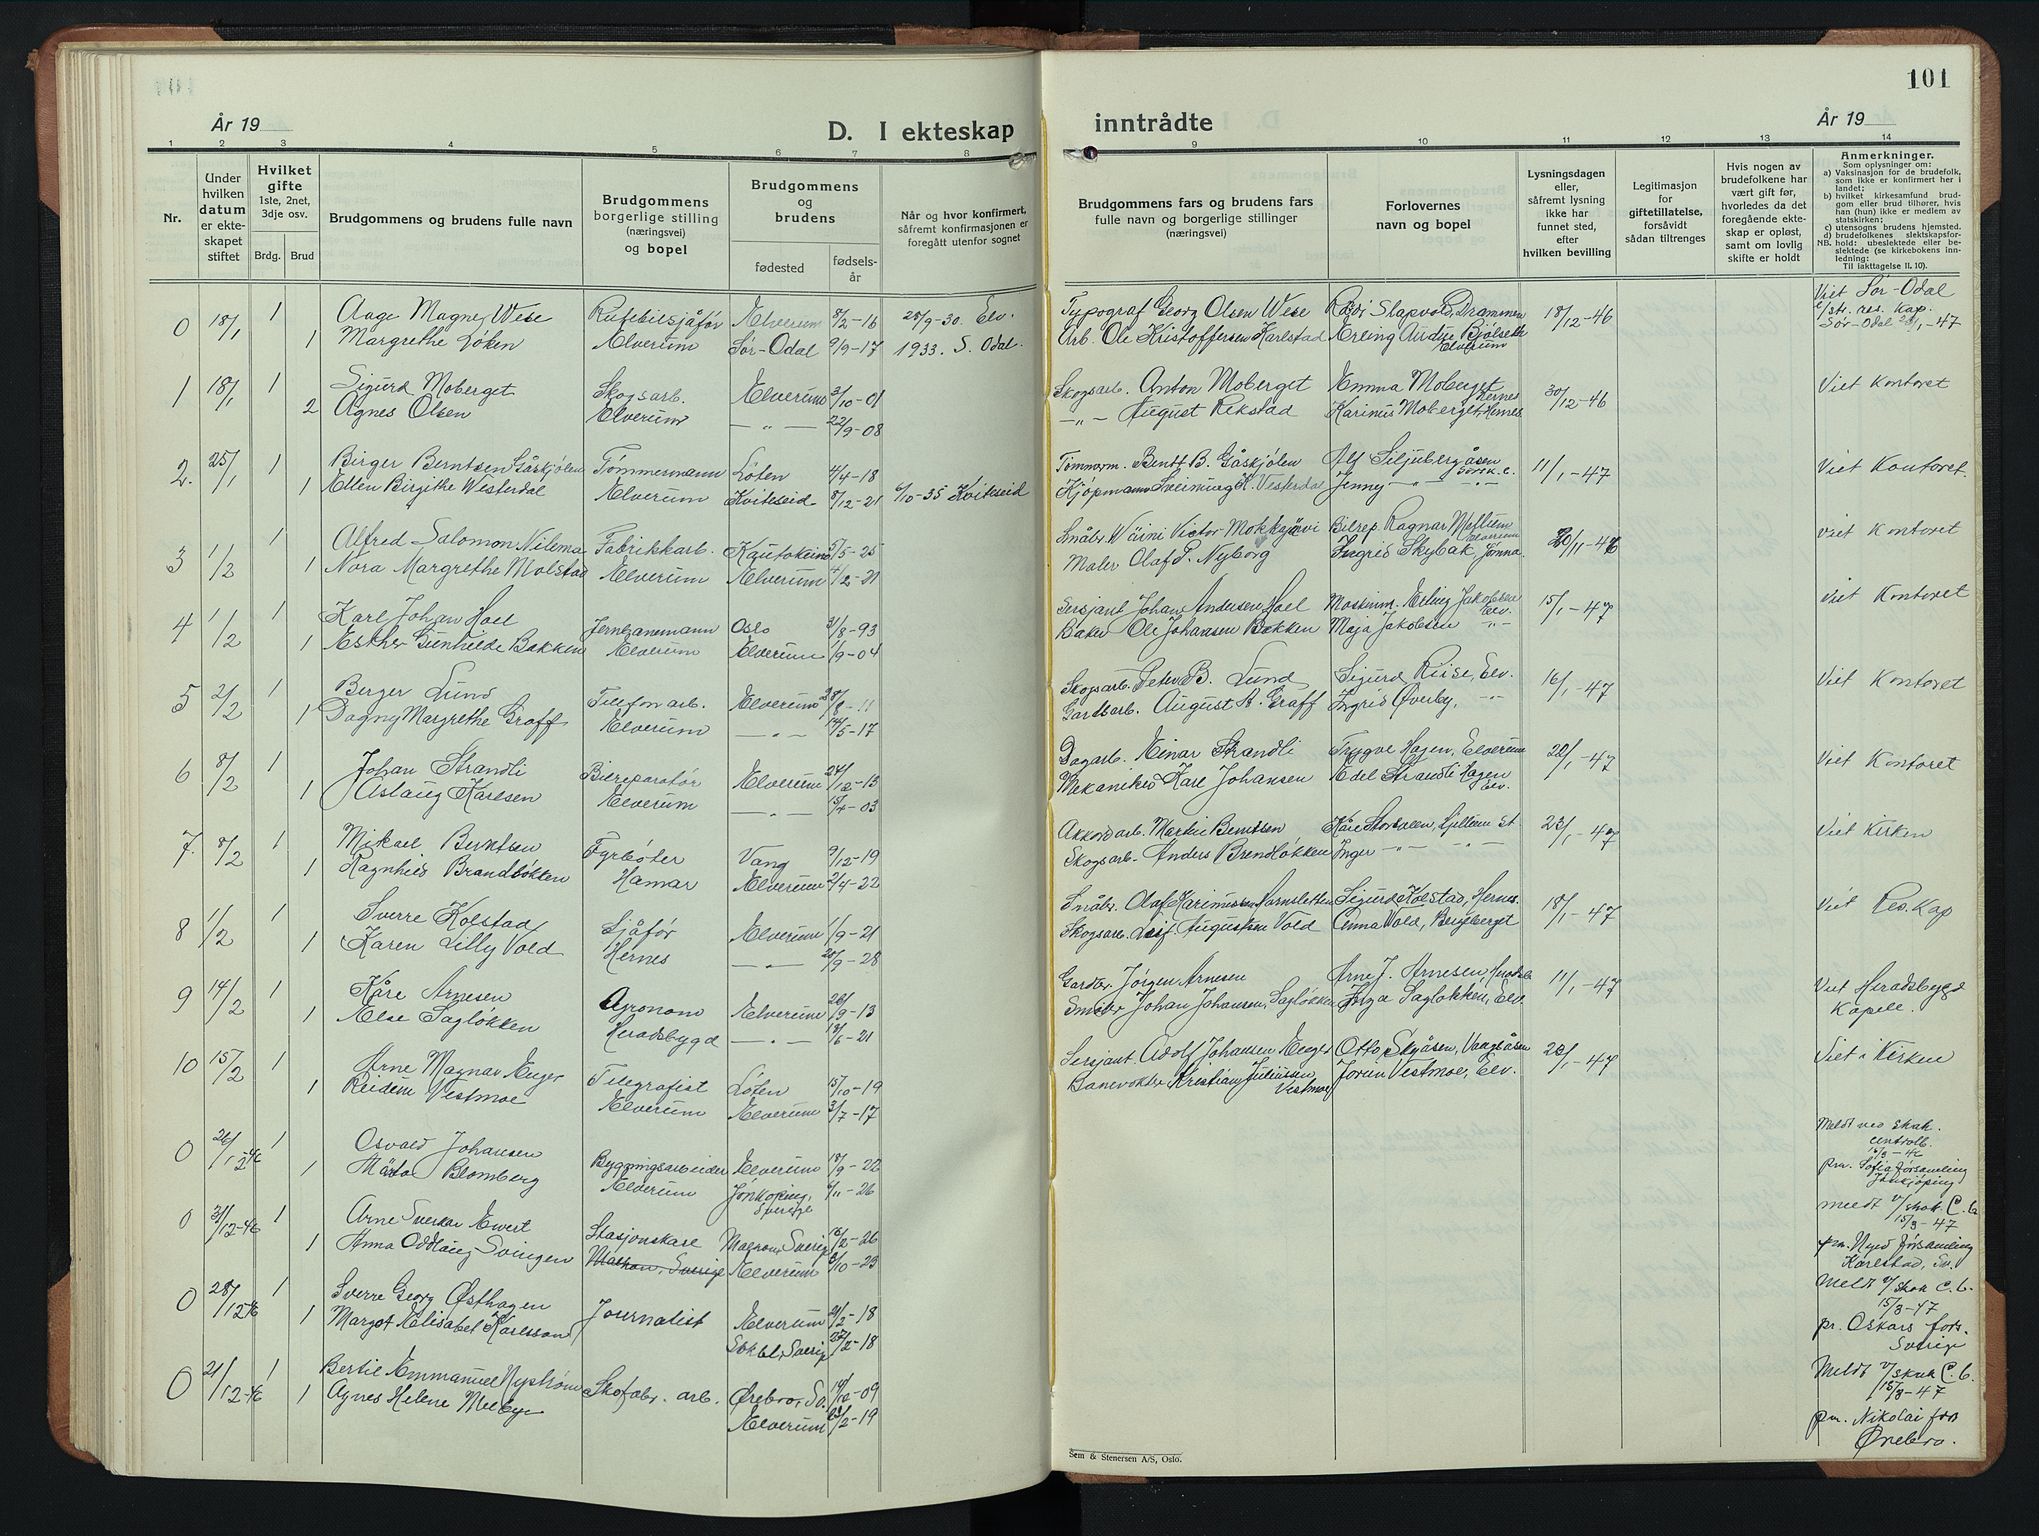 101
År 19
D. I ekteskap
inntrådte
År 19
1 2 3 4 5 6 7 8 9 10 11 12 13 14
Nr.
Under hvilken datum er ekteskapet stiftet
Hvilket gifte 1ste, 2net, 3dje osv.
Brdg. Brud
Brudgommens og brudens fulle navn
Brudgommens borgerlige stilling (næringsvei) og bopel
Brudgommens og brudens
fødested
fødselsår
Når og hvor konfirmert, såfremt konfirmasjonen er foregått utenfor sognet
Brudgommens fars og brudens fars fulle navn og borgerlige stillinger (næringsvei)
Forlovernes navn og bopel
Lysningsdagen eller, såfremt lysning ikke har funnet sted, efter hvilken bevilling
Legitimasjon for giftetillatelse, forsåvidt sådan tiltrenges
Hvis nogen av brudefolkene har vært gift før, hvorledes da det foregående ekteskap er opløst, samt om lovlig skifte er holdt
Anmerkninger.
Som oplysninger om:
a) Vaksinasjon for de brudefolk, som ikke er konfirmert her i landet;
b) hvilket kirkesamfund brudgom eller brud tilhører, hvis han (hun) ikke er medlem av statskirken;
c) utensogns brudens hjemsted.
d) brudefolkenes slektskapsforhold: ubeslektede eller beslektede (se kirkebokens innledning:
NB.
Til iakttagelse II. 10).
0 18/1 1 Aage Magne Wese Rutebilsjåfør Elverum 8/2-16 28/9-30. Elv. Typograf Georg Olsen Wese Rådi Slapvold, Drammen 18/12-46 Viet Sør-Odal
1 Margrethe Løken Elverum Sør-Odal 9/9-17 1933. S. Odal. Arb. Ole Kristoffersen Karlstad Erling Audun Bjølseth Elverum v/str. res. Kap. Sør-Odal -47
1 18/1 1 Sigurd Moberget Skogsarb. Elverum 3/10-01 Skogsarb. Anton Moberget Emma Moberget Hernes 30/12-46 Viet Kontoret
2 Agnes Olsen Elverum -"- 22/9-08 -"- August Rekstad Karinus Moberget, Hernes
2. 25/1 1 Birger Berntsen Gåskjølen Tømmermann Løten 4/4-18 Tømmerm. Bernt B. Gåskjølen Alf Siljuberåsen 11/1-47 Viet Kontoret.
1 Ellen Birgithe Vesterdal Elverum Kviteseid 8/12-21 6/10-35 Kviteseid Kjøpmann Sveinung K. Vesterdal Jenny -"- -"-
3 1/2 1 Alfred Salomon Nilema Fabrikkarb. Kautokeino 5/5-25 Småbr. Wäini Victor Mokkajärvi Bilrep. Ragnar Mellum Elverum 20/11-46 Viet Kontoret
1 Nora Margrethe Molstad Elverum Elverum 4/2-21 Maler Olaf P. Nyborg Ingrid Skybak, Jømna
4 1/2 1 Karl Johan Hoel Jernbanemann Oslo 31/8-93 Sersjant Johan Andersen Hoel Maskinm. Erling Jakobsen Elv. 15/1-47 Viet Kontoret
1 Esther Gunhilde Bakken Elverum Elverum 1/9-04 Baker Ole Johansen Bakken Maja Jakobsen -"-
5 2/2 1 Berger Lund Telefonarb. Elverum 28/8-11 Skogsarb. Peter B. Lund Sigurd Riise, Elv. 16/1-47 Viet Kontoret
1 Dagny Margrethe Graff Elverum -"- 14/5-17 Gardsarb. August A. Graff Ingrid Øverby, -"-
6 8/2 1 Johan Strandli Bilreparatør Elverum 24/12-13 Dagarb. Einar Strandli Trygve Hagen, Elverum 22/1-47 Viet Kontoret
1 Aslaug Karlsen Elverum -"- 15/4-03 Mekaniker Karl Johansen Edel Strandli Hagen Elv.
7. 8/2 1 Mikael Berntsen Fyrbøter Vang 9/12-19 Akkordarb. Martin Berntsen Kåre Storsveen, Sjellum st. 23/1-47 Viet Kirken
1 Ragnhild Brandløkken Hamar Elverum 2/4-22 Skogsarb. Anders Brendløkken Inger -"- -"-
8 1/2 1 Sverre Kolstad Sjåfør Elverum 1/9-21 Småbr. Olaf Karinussen Sigurd Kolstad, Hernes. 18/1-47 Viet Res. Kap
1 Karen Lilly Vold Hernes -"- 20/9-28 Skogsarb. Leif Augustsen Vold Anna Vold, Bergeberget
9 14/2 1 Kåre Arnesen Agronom Elverum 26/9-13 Gardbr. Jørgen Arnesen Arne J. Arnesen, 11/1-47 Viet Heradsbygd Kapell.
1 Else Sagløkken Heradsbygd -"- 13/6-21 Smed Johan Johansen, Sagløkken Inga Sagløkken, Elv.
10 15/2 1 Arne Magnar Enger Telegrafist Løten 15/10-19 Sersjant Adolf Johansen Enger Otto Skyåsen, Vangsåsen 23/1-47 Viet i Kirken
1 Reidun Vestmoe Elverum Elverum 3/7-17 Banevokter Kristian Juliussen Vestmoe Jorun Vestmoe, Elv.
0 26/12-46 1 Osvald Johansen Bygningsarbeider Elverum 18/9-22 Meldt ved Ekak. centralb.
1 Märta Blomberg Elverum Jönköping, Sverige 6/11-26 pr. Sofia församling Jönköping
0 31/12-46 1 Arne Sverkar Evert Stasjonskarl Malkom, Sverige 18/2-26 meldt v/skak C.b. 15/3-47
1 Anna Oddlaug Svingen Malkom, Sverige Elverum 3/10-23 pr. Nyed församling Karlstad, Sv.
0 28/12-46 1 Sverre Georg Østhagen Journalist Elverum 21/2-18 Meldt v/skak C.b. 15/3-47
1 Margot Elisabet Karlsson Sverige 22/2-18 pr. Oskars förs. Sverige
0 21/12-46 1 Bertil Emmanuel Nyström Skofabr. arb. Ørebro, Sv. 14/12-09 Meldt v/skak C.b. 15/3-47
1 Agnes Helene Melbye Elverum 23/2-19 pr. Nikolai förs Ørebro.
Sem & Stenersen A/S, Oslo.